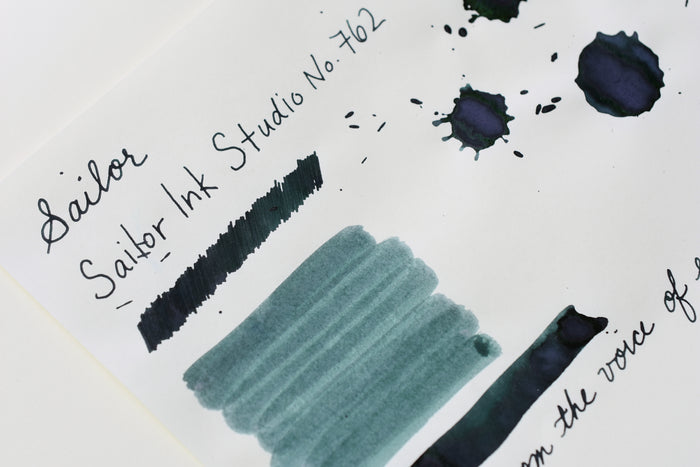 Sailor
Sailor Ink Studio No. 762
the voice of